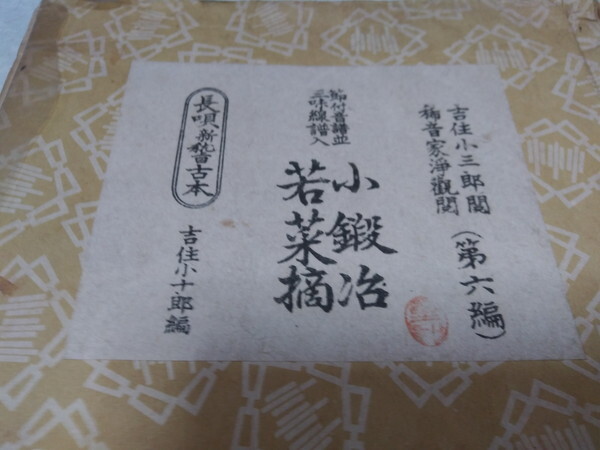 吉住小三郎閲
稀音家淨觀閲
(第六編)
節付音譜並
三味線譜入
小鍛冶
若菜摘
長唄新稽古本
吉住小十郎編